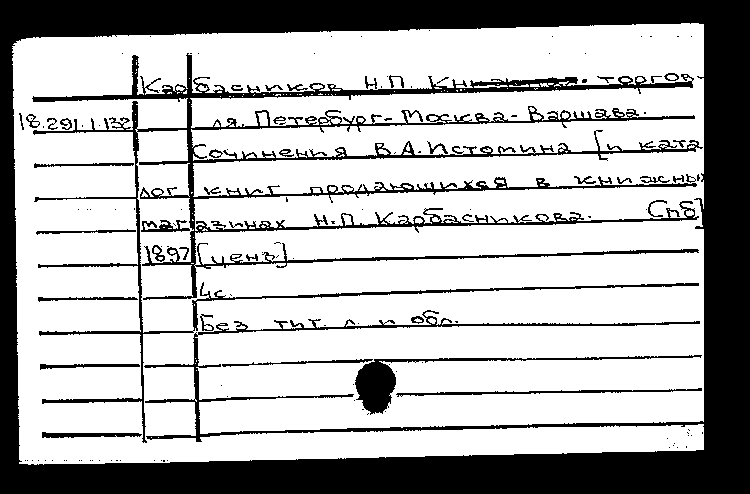 Карбасников, Н.П. Кн. торгов-
18.291.1.132 ля. Петербург-Москва-Варшава.
Сочинения В.А.Истомина [и ката
лог книг, продающихся в книжны
магазинах Н.П. Карбасникова. Спб]
1897 [ценз]
4с.
Без тит. л и обл.